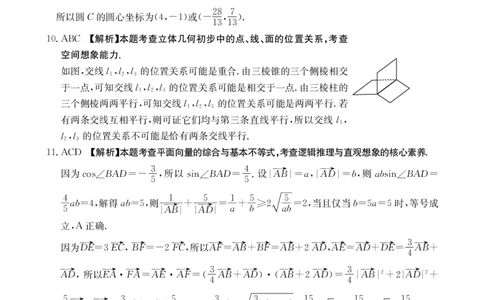 所以圆C的圆心坐标为(4,-1)或(-28/13,7/13).
10. ABC 【解析】本题考查立体几何初步中的点、线、面的位置关系,考查
空间想象能力.
如图,交线l₁,l₂,l₃的位置关系可能是重合.由三棱锥的三个侧棱相交
于一点,可知交线l₁,l₂,l₃的位置关系可能是相交于一点.由三棱柱的
三个侧棱两两平行,可知交线l₁,l₂,l₃的位置关系可能是两两平行.若
有两条交线互相平行,则可证它们均与第三条直线平行,所以交线l₁,
l₂,l₃的位置关系不可能是恰有两条交线平行.
11. ACD 【解析】本题考查平面向量的综合与基本不等式,考查逻辑推理与直观想象的核心素养.
因为cos∠BAD=-3/5,所以sin∠BAD=4/5.设|AB|=a,|AD|=b,则absin∠BAD=
4/5ab=4,解得ab=5,则1/|AB|+5/|AD|=1/a+5/b≥2√(5/ab)=2,当且仅当b=5a=5时,等号成
立,A正确.
因为DE=3EC,BF=-2FC,所以AF=AB+BF=AB+2AD,AE=AD+DE=3/4AB+
AD,所以EA·FA=AE·AF=(3/4AB+AD)·(AB+2AD)=3/4|AB|²+2|AD|²+